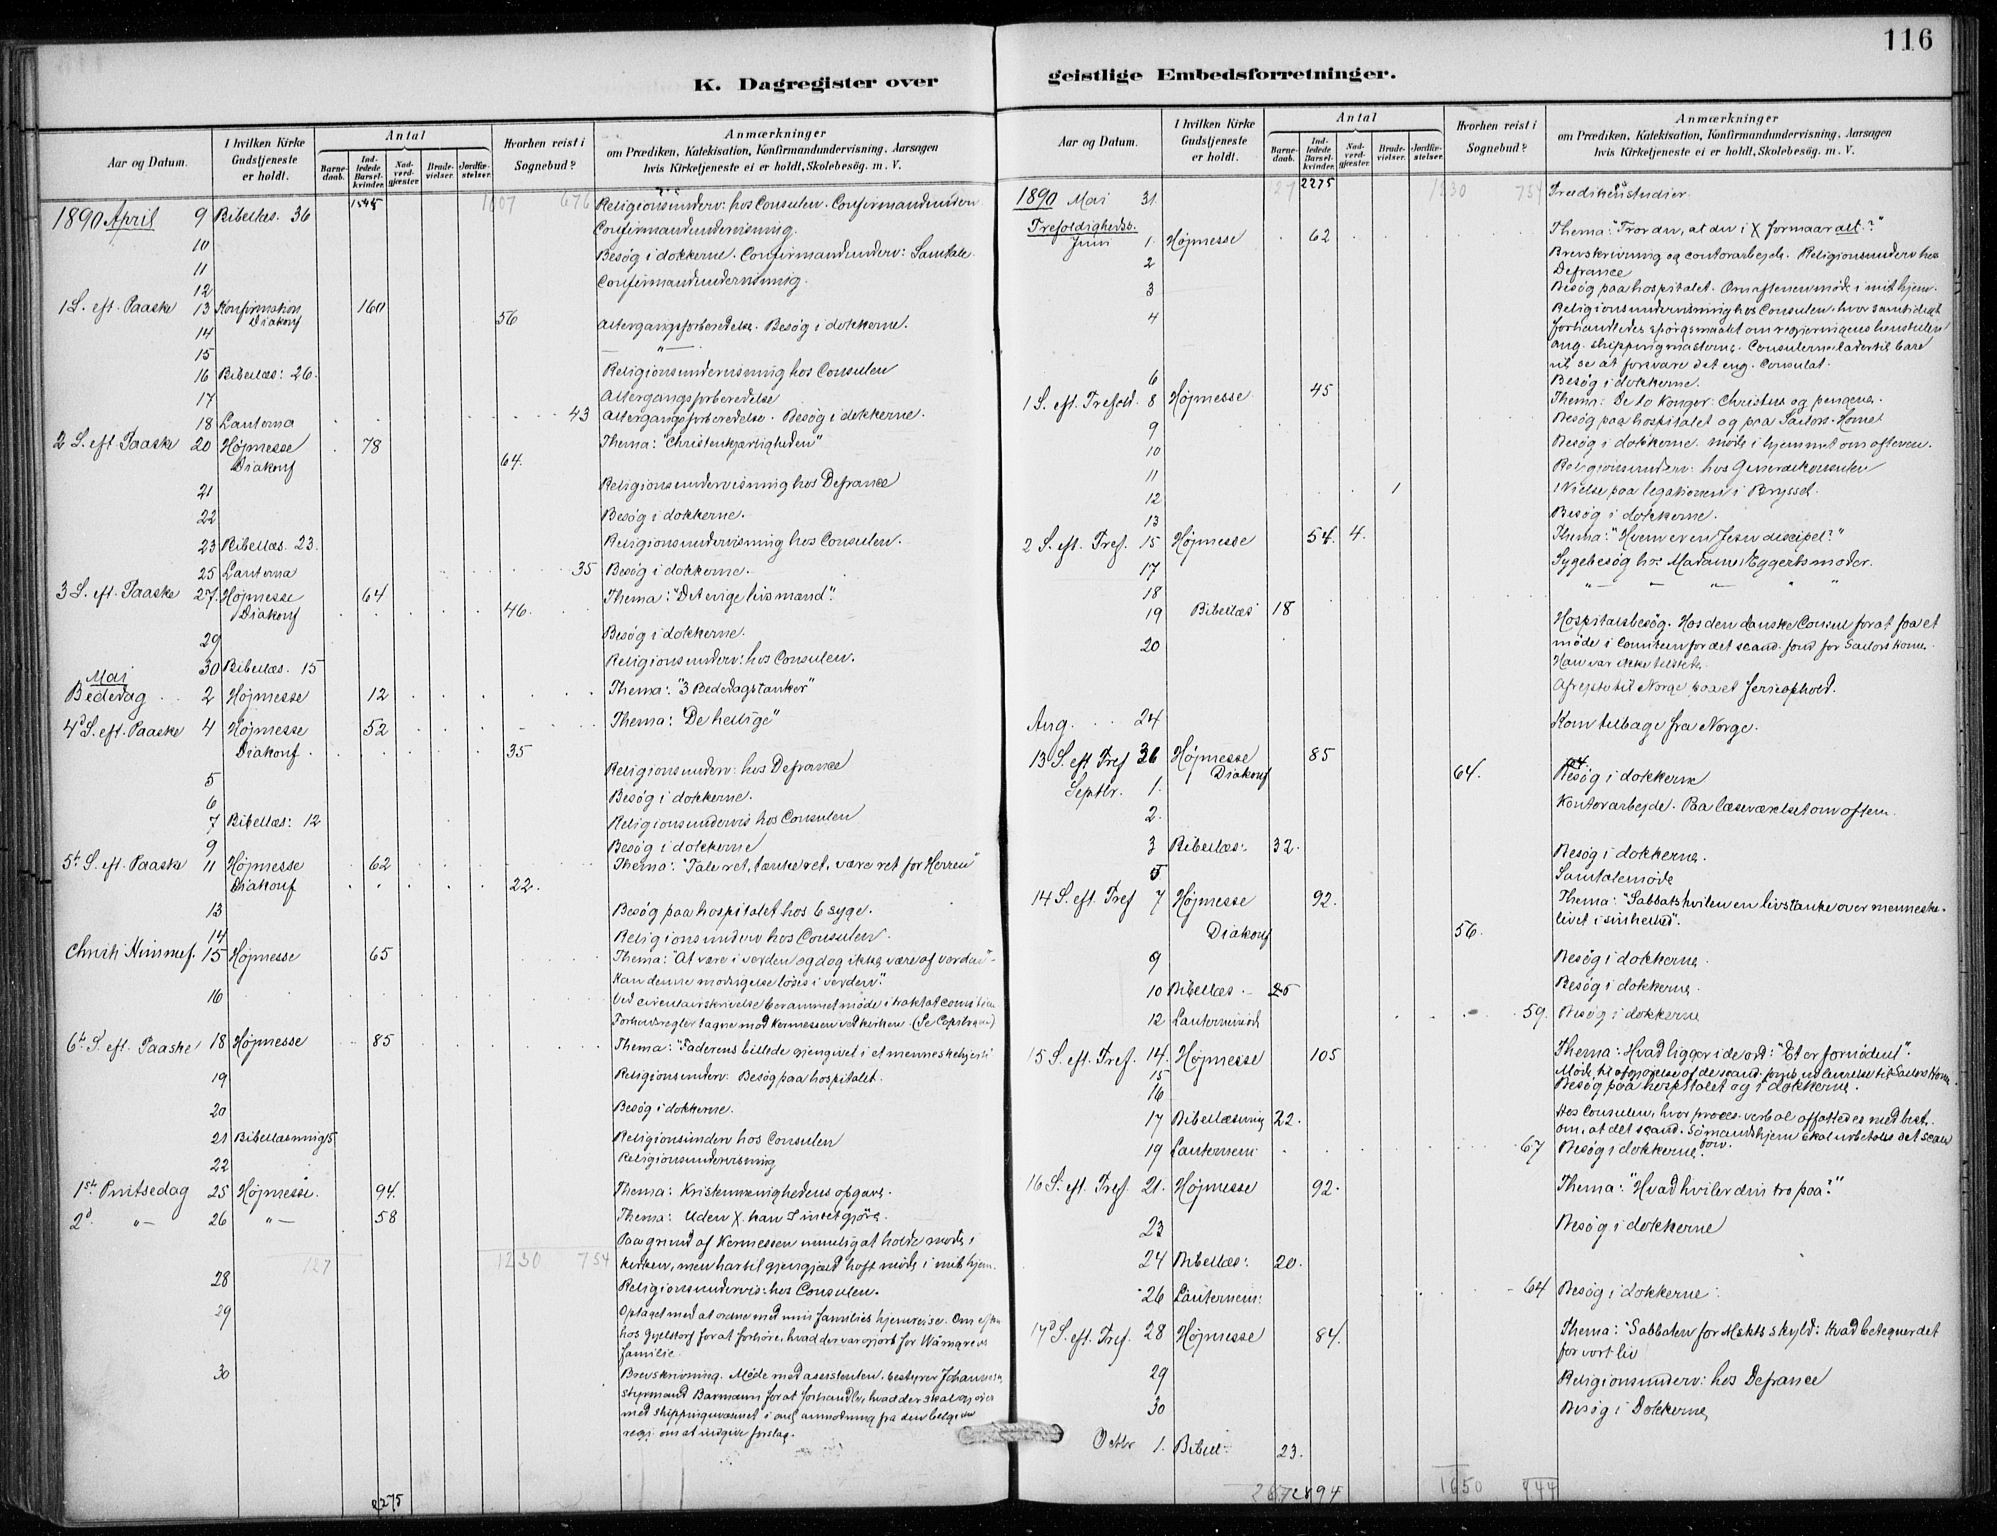 116
K. Dagregister over
Aar og Datum.
I hvilken Kirke Gudstjeneste er holdt.
Antal
Barne-daab.
Ind-ledede Barsel-kvinder.
Nad-verd-gjæster
Brude-vielser.
Jordfæ-stelser.
Hvorhen reist i Sognebud?
Anmærkninger
om Prædiken, Katekisation, Konfirmandundervisning, Aarsagen
hvis Kirketjeneste ei er holdt, Skolebesøg. m. V.
1545 1107 676
1890 April 9 Bibellæs. 36 Religionsunderv: hos Consulen. Confirmandunderv
10 Confirmandundervisning.
11 Besøg i dokkerne. Confirmandunderv: Samtale
12 Confirmandundervisning.
1 S. eft. Paaske 13 Konfirmation 160
Diakonf 56
14 Altergangsforberedelse. Besøg i dokkerne.
15 — " —
16 Bibellæs: 26. Religionsundervisning hos Consulen
17 Altergangsforberedelse
18 Lanterna 43 Altergangsforberedelse. Besøg i dokkerne.
2 S. eft Paaske 20 Højmesse 78 Thema: "Christenkjærligheden"
Diakonf 64.
21 Religionsundervisning hos Defrance
22 Besøg i dokkerne.
23 Bibellæs. 23. Religionsundervisning hos Consulen.
25 Lanterna 35 Besøg i dokkerne.
3 S. eft. Paaske 27. Højmesse 64 Thema: "Det evige livs mand".
Diakonf 46.
29 Besøg i dokkerne.
30 Bibellæs. 15 Religionsunderv: hos Consulen.
Mai
Bededag 2 Højmesse 12 Thema: "3 Bededagstanker"
4d S. eft. Paaske 4 Højmesse 52 Thema: "De hellige"
Diakonf 35
5 Religionsunderv: hos Defrance
6 Besøg i dokkerne.
7 Bibellæs: 12 Religionsundervis hos Consulen
9 Besøg i dokkerne
5t S. eft Paaske 11 Højmesse 62 Thema: "Tale ret, tænke ret, være ret for Herren"
Diakonf 22.
13 Besøg paa hospitalet hos 6 syge.
14 Religionsunderv hos Consulen.
Christi Himmef. 15 Højmesse 65 Thema: "At være i verden og dog ikke være af verden" -
Kan denne modsigelse løses i verden".
16 Ved circulairskrivelse berammet møde i traktatcomiteen
Forhaandsregler tagne mod Kermessen ved kirken.
6t S. eft. Paaske 18 Højmesse 85 Thema: "Faderens billede gjengivet i et menneskehjerte"
19 Religionsunderv: Besøg paa hospitalet.
20 Besøg i dokkerne.
21 Bibellæsning 5 Religionsunderv hos Consulen
22 Religionsundervisning
1ste Pintsedag 25 Højmesse. 94. Thema: Kristenmenighedens opgave.
2d. " — 26 " — 58 Thema: Uden X kan I intet gjöre.
Paa grund af Kermessen umuligat holde møde i
127 1230 754 kirken, men har til gjengjæld hoft møde i mit hjem.
28 Religionsundervis: hos Consulen.
29 Optaget med at ordne med min families hjemreise. Om eften
hos for at forhøre, hvad der var gjort for
familie.
30 Brevskrivning. Møde med assistenten, bestyrer Johannesen
styrmand Barmann for at forhandle, hvad der skal gjøres
med shippingvæsenet i anl. anmodning fra den belgiske
regj. om at indgive forslag.
2275
geistlige Embedsforretninger.
Aar og Datum.
I hvilken Kirke Gudstjeneste er holdt.
Antal
Barne-daab.
Ind-ledede Barsel-kvinder.
Nad-verd-gjæster
Brude-vielser.
Jordfæ-stelser.
Hvorhen reist i Sognebud?
Anmærkninger
om Prædiken, Katekisation, Konfirmandundervisning, Aarsagen
hvis Kirketjeneste ei er holdt, Skolebesøg. m. V.
27 2275 1230 754
1890 Mai 31. Prædikenstudier.
Trefoldighedss.
Juni 1. Højmesse 62 Thema: "Tror du, at du i X formaar alt?"
2 Brevskrivning og contorarbejde. Religionsunderv hos
Defrance
3 Besøg paa hospitalet. Om aftenen møde i mit hjem.
4 Religionsundervisning hos Consulen, hvor samtidigt
forhandledes spørgsmaalet om regjerningens henstillen
ang. shippingmasterne. Consulerne lader til bare
vil se at forsvare det eng. Consulat.
6 Besøg i dokkerne.
1 S. eft. Trefold. 8 Højmesse 45 Thema: De to Konger: Christus og pengene.
9 Besøg paa hospitalet og paa Sailors-Home
10 Besøg i dokkerne. møde i hjemmet om aftenen.
11 Religionsunderv: hos Generalkonsulen
12 1 1 Vielse paa legationen i Bryssel.
13 Besøg i dokkerne.
2 S. eft. Tref. 15 Højmesse 54. 4. Thema: "Hvem er en Jesu discipel?"
17 Sygebesøg hos Madame Eggerts moder.
18 " — " — " " "
19 Bibellæs 18
20 Hospitalsbesøg. Hos den danske Consul for at faa et
møde i Comiteen for det scand. fond for Sailors Home.
Han var ikke tilstede.
Afrejste til Norge paa et ferieophold.
Aug. 24 Kom tilbage fra Norge.
13 S. eft Tref 36 Højmesse 85
Diakonf 64.
Septbr. 1. Besøg i dokkerne
2. Kontorarbejde. Paa læseværelset om aften.
3 Bibellæs: 32. Besøg i dokkerne.
5 Samtalemøde
14 S. eft. Tref 7 Højmesse 92. Thema: "Sabbatshvilen en livstanke over menneske-
livet i sin helhed".
Diakonf 56.
9 Besøg i dokkerne
10 Bibellæs. 25 Besøg i dokkerne.
12 Lanternemöde 59. Besøg i dokkerne
15 S. eft. Tref. 14. Højmesse 105 Thema: Hvad ligger i de ord: "Et er fornödent".
15 Møde til afgjørelse af de scand. udlæverelse til Sailors Home
16 Besøg paa hospitalet og i dokkerne.
17 Bibellæsning 22. Hos Consulen, hvor proces-verbal affattedes med best.
om, at det scand. Sømandshjem skal udbetales det scan
forr.
19 Lanternem: 67 Besøg i dokkerne.
16 S. eft. Tref. 21. Højmesse 92. Thema: "Hvad hviler din tro paa?"
23 Besøg i dokkerne
24 Bibellæs: 20.
26 Lanternem: 64 Besøg i dokkerne.
17d S. eft. Tref. 28 Højmesse 84. Thema: "Sabbaten for Mskts skyld: Hvad betegner det
for vort liv
29 Religionsunderv: hos Defrance
30 Besøg i Dokkerne
Octbr 1. Bibel: 23.
267 2894 1650 944